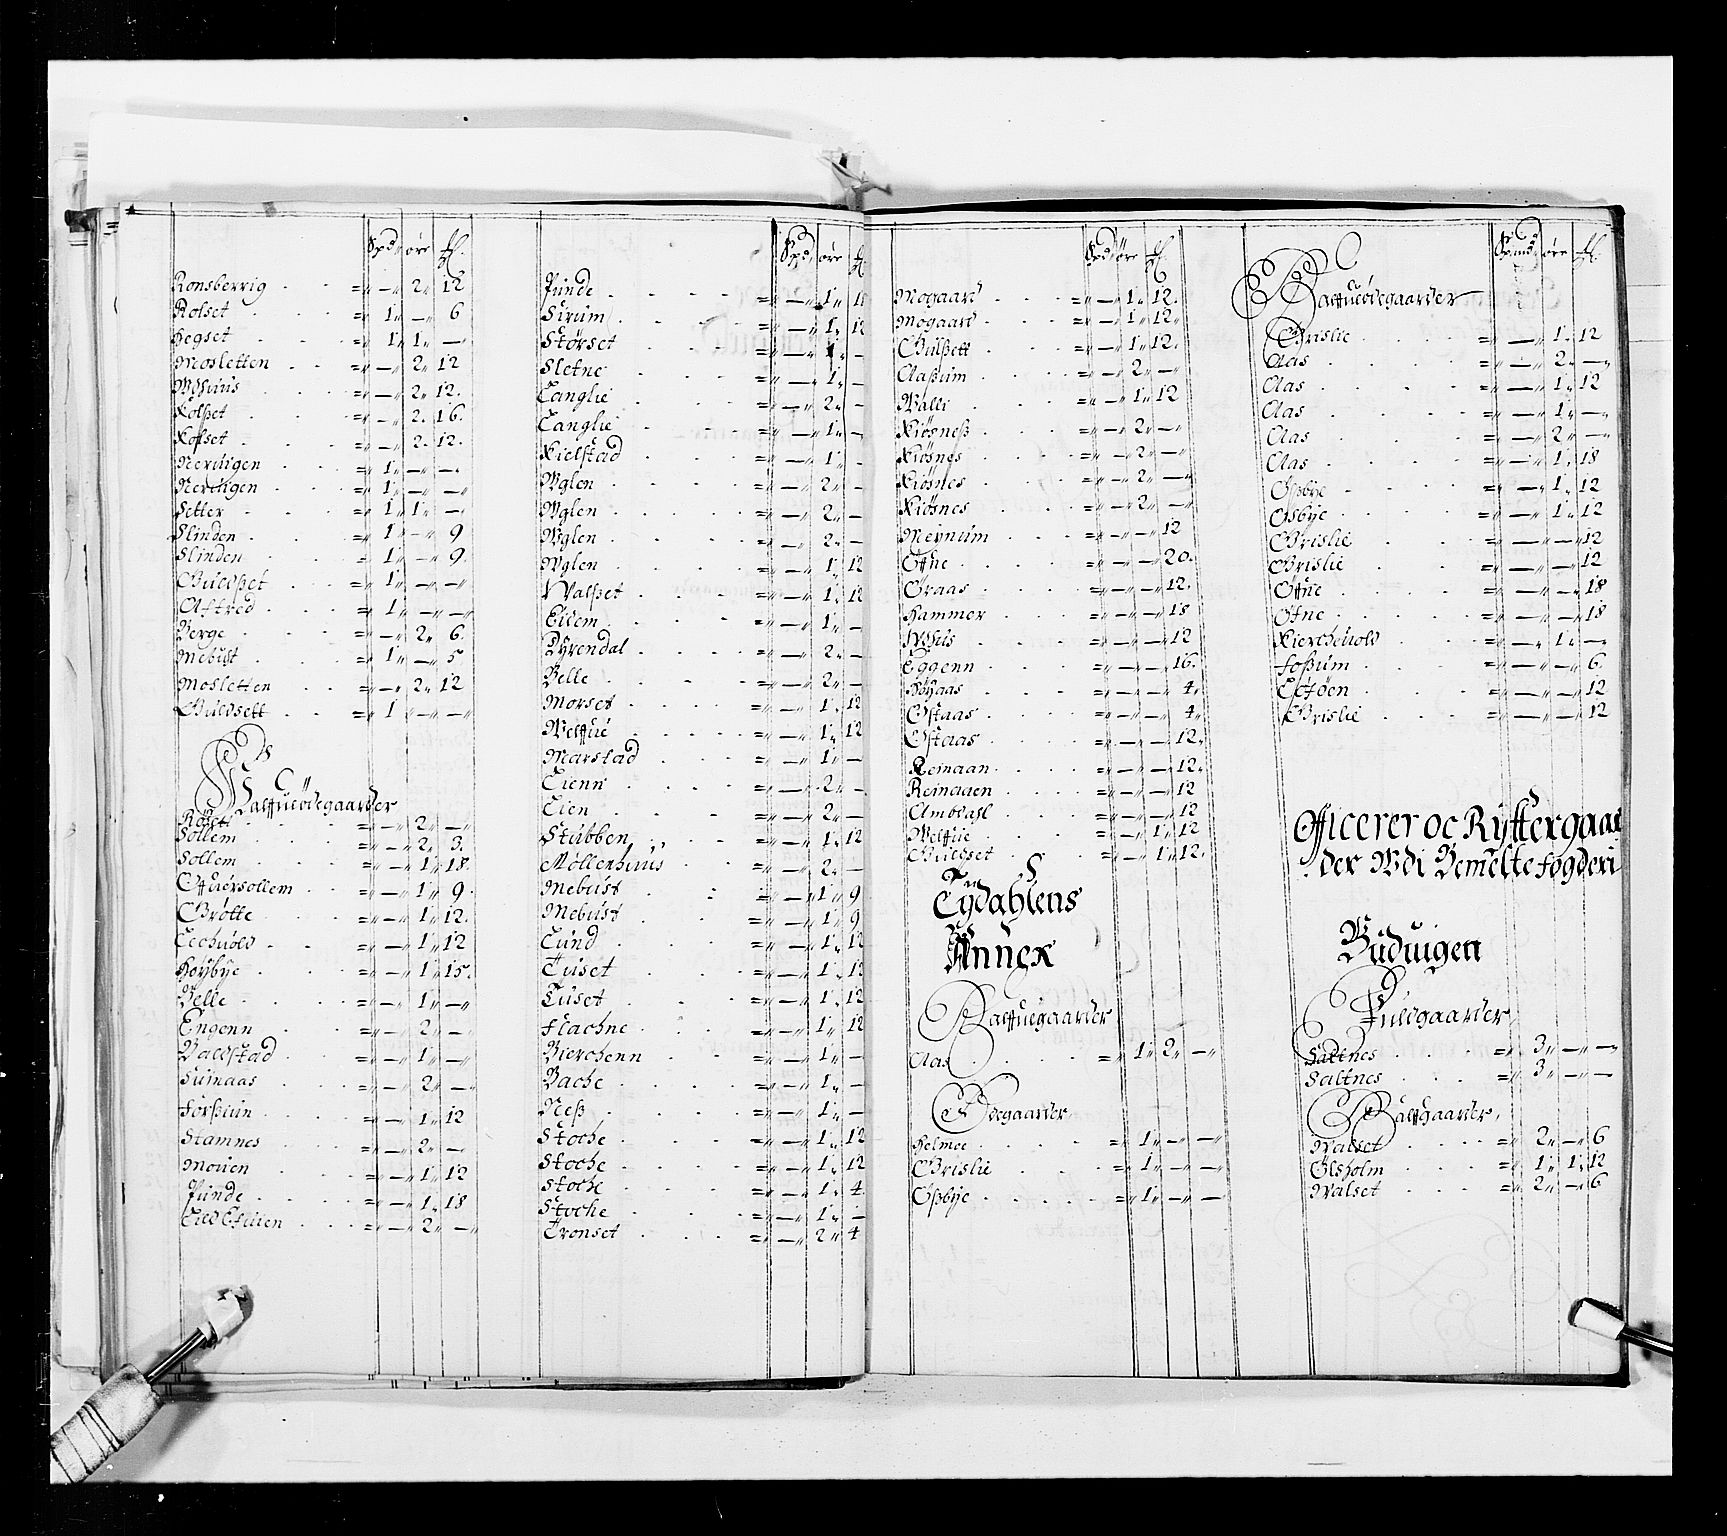 Spd øre ₰
Ronsberrig = — 2 12
Rolset = 1 — 6
Hegset = 1 1 —
Mosletten = — 2 12
= — 2 12
Kolßet = — 2 16
Kolset = — 2 12
Neruigen = 1 — —
Neruigen = 1 — —
Setter = 1 1 —
Slinden = 1 — 9
Slinden = 1 — 9
Guldßet = 1 — —
Aftred = 1 — —
Berge = — 2 6
Mebust = 1 — 5
Mosletten = — 2 12
Guldsett = 1 — —
Halffueødegaarder
= — 2 —
Sollem = — 2 3
Sollem = — 1 18
Offuersollem = — 1 9
Grøtte = — 1 12
Eechuold = — 1 12
Høybye = — 1 15
Velle = — 1 —
Engenn = — 2 —
= — 1 —
Suinaas = — 2 —
= — 1 12
Stamnes = — 2 —
Mouen = — 1 12
Punde = — 1 18
= — 2 —
Spd øre ₰
Punde = — 1
Sirum = — 1 12
Størset = — 1 —
Sletne = — 1 —
Langlie = — 2 —
Langlie = — 1 —
Kielstad = — 1 —
Uglen = — 2 —
Uglen = — 2 —
Uglen = — 2 —
Uglen = — 1 12
Walset = — 1 12
Eidem = — 1 —
Dyrendal = — 2 —
Velle = — 2 —
Morset = — 1 12
Welffue = — 1 12
Marstad = — 1 —
Lienn = — 2 —
Lien = — 2 —
Stubben = — 1 12
Møllenhuus = — 2 —
Mebust = — 1 9
Mebust = — 1 9
Lund = — 1 12
Tuset = — 1
Tuset = — 1 12
Flachne = — 1 12
Bierchenn = — 1 —
Bache = — 1 —
Neß = — 1 —
Stoche = — 1 12
Stoche = — 1 12
Stoche = — 1 4
Stoche = — 1 —
Tronset = — 2 4
Spd øre ₰
Mogaard = — 1 12
Mogaard = — 1 12
Gulßett = — 1 12
Aaßum = — 2 —
Walli = — 1 12
Kiøsneß = — 2 —
Kiøsnes = — 2 —
Kiøsnes = — 2 —
Kiøsnes = — 2 —
Meynum = — — 12
Ofne = — — 20
Øraas = — — 12
Hammer = — — 18
= — — 12
Eggenn = — — 16
= — — 4
Østaas = — — 4
Østaas = — — 12
Reinaan = — — 12
Reinaaen = — — 12
Ambdahl = — — 12
Welffue = — 1 12
Guldset = — 1 12
Tydahlens
Annex
Halffuegaarder
Aas = 1 2 —
Ødegaarder
Helmoe = 1 — —
Grislie = 1 — —
Oßbye = 1 — —
Spnd øre ₰
Halffueødegaarder
Grislie = — 1 12
Aas = — 2 —
Aas = — 1 12
Aas = — 1 —
Aas = — 2 —
Aas = — 1 18
Osbye = — 1 12
Osbye = — 1 12
Grislie = — — 12
Grislie = — — 12
Øffne = — — 18
Øfne = — — 18
Kierchuold = — 1 —
Foßum = — — 6
= — — 12
Grislie = — — 12
Officerer oc Ryttergaar
der Udi Bemelte Fogderi
Buduigen
Fuldgaarder
Saltnes = 3 — —
Saltnes = 3 — —
Halffgaarder
Walset = 2 — 6
Ølsholm = 1 1 12
Walset = 2 — 6